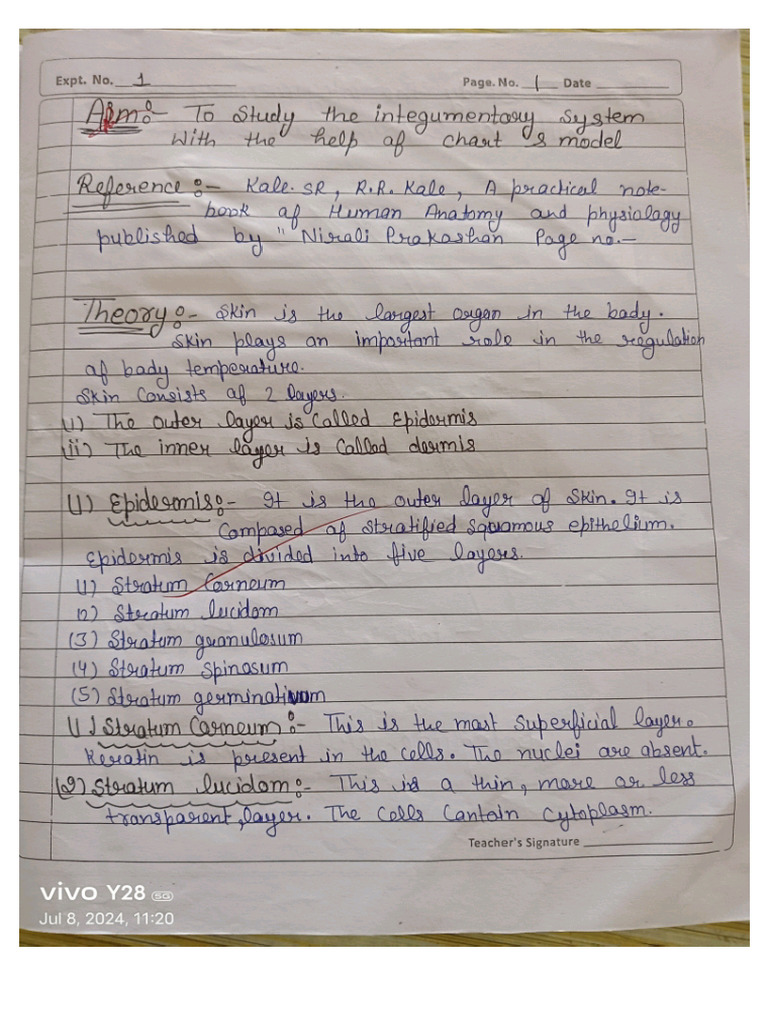 Expt. No. 1 Page. No. 1 Date
Aim:- To Study the integumentary System
With the help of chart & model
Reference:- Kale. SR, R.R. Kale, A practical note-
book of Human Anatomy and physiology
published by "Nirali Prakashan Page no.-
Theory:- Skin is the largest organ in the body.
Skin plays an important role in the regulation
of body temperature.
Skin Consists of 2 layers.
i) The outer layer is Called Epidermis
ii) The inner layer is Called dermis
(1) Epidermis:- It is the outer layer of Skin. It is
Composed of Stratified Squamous epithelium.
Epidermis is divided into five layers.
1) Stratum Corneum
2) Stratum lucidom
(3) Stratum granulosum
(4) Stratum Spinosum
(5) Stratum germinativum
1) Stratum Corneum:- This is the most Superficial layer.
Keratin is present in the cells. The nuclei are absent.
(2) Stratum lucidom:- This is a thin, more or less
transparent, layer. The Cells Contain Cytoplasm.
Teacher's Signature
vivo Y28 5G
Jul 8, 2024, 11:20